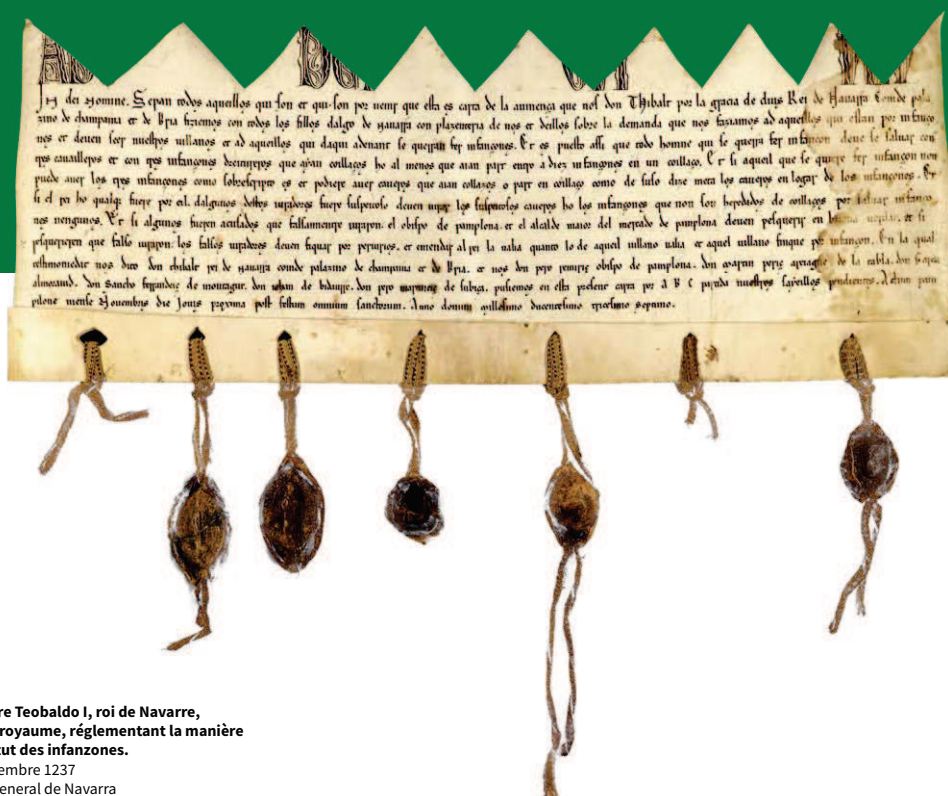 In dei Nomine. Sepan todos aqueillos qui son et qui son por uenir que esta es carta de la auinença que nos don Thibalt por la gracia de dius Rei de Nauarra Comde pala
zino de champaina et de Bria fiziemos con todos los fillos dalgo de nauarra con plazenteria de nos et deillos sobre la demanda que nos faziamos ad aqueillos qui estan por infanço
nes et deuen seer nuestros uillanos et ad aqueillos qui daqui adenant se querran fer infançones. Et es puesto assi que todo homne qui se querra fer infançon deue se saluar con
tres cauailleros et con tres infançones dreitureros que aian coillaços ho al menos que aian part entro a diez infançones en un coillaço. Et si aqueil que se quiere fer infançon non
puede auer los tres infançones como sobrescripto es et podiere auer caueros que aian collazos o part en coillaço como de suso dize meta los caueros en logar de los infançones. Et
si el rei ho qualq fuere por eil. dalgunos destos iuradores fuere suspeitoso deuen iurar los suspeitosos caueros ho los infançones que non son heredados de coillaços por saluar infanço
nes nengunos. Et si algunos fueren acusados que falsamente iuraron. el obispo de pamplona. et el alcalde maior del mercado de pamplona deuen pesquerir en buena uerdat. et si
pesquirieren que falso iuraron. los falsos iuradores deuen fiquar por periurios. et emendar al rei la ualia quanto lo de aqueil uillano ualia et aquel uillano finque por infançon. En la qual
testimoniedat nos dito don thibalt rei de nauarra comde palazino de champaina et de Bria. et nos don pero remiriz obispo de pamplona. don de la tabla. don
almorauid. don sancho ferrandez de montagut. don iohan de bidaurre. don pero martinez de subiça. pusiemos en esta present carta por A B C partida nuestros sayeillos pendientes. Actum pam
pilone mense Nouembris die Jouis proxima post festum omnium sanctorum. Anno domini millesimo ducentesimo tricesimo septimo.
re Teobaldo I, roi de Navarre,
royaume, réglementant la manière
tut des infanzones.
embre 1237
eneral de Navarra